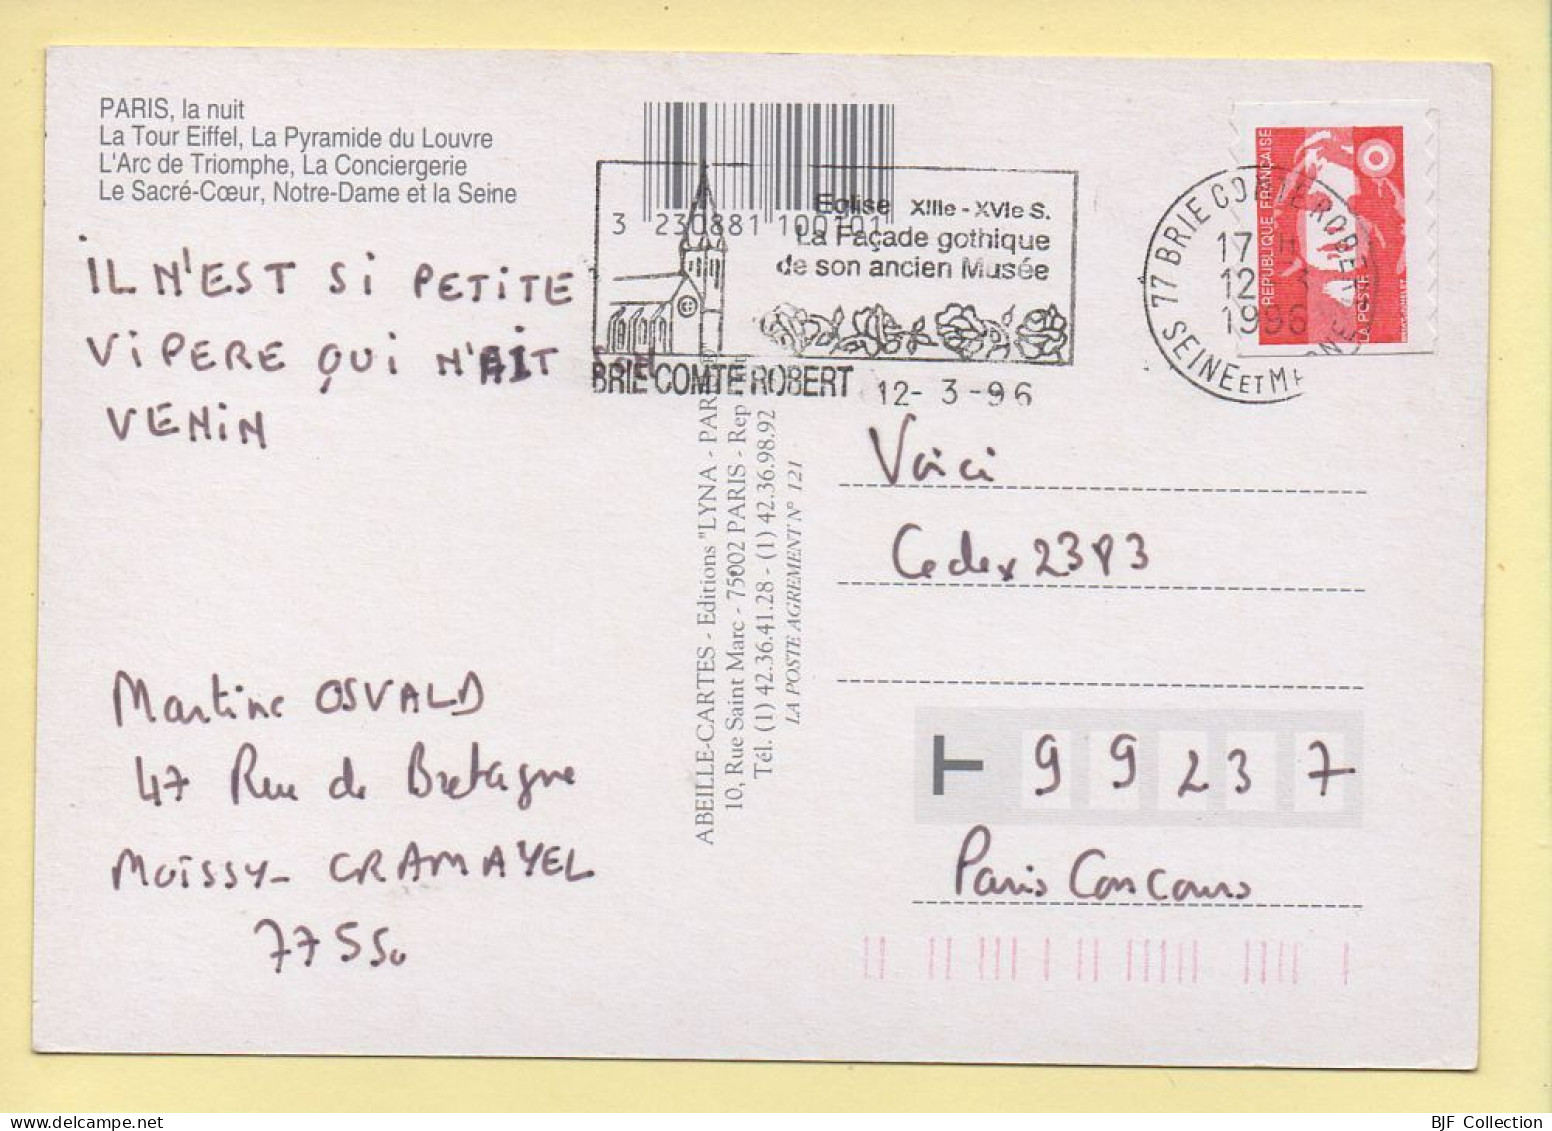 PARIS, la nuit
La Tour Eiffel, La Pyramide du Louvre
L'Arc de Triomphe, La Conciergerie
Le Sacré-Cœur, Notre-Dame et la Seine
3 230881 100101
Eglise XIIIe - XVIe S.
La Façade gothique
de son ancien Musée
BRIE COMTE ROBERT
12- 3 -96
77 BRIE COMTE ROBERT
17 H
12 3
1996
SEINE ET MARNE
REPUBLIQUE FRANÇAISE
LA POSTE
IL N'EST SI PETITE
VIPERE QUI N'AIT SON
VENIN
Martine OSVALD
47 Rue de Bretagne
MOISSY- CRAMAYEL
77550
ABEILLE-CARTES - Editions "LYNA - PARIS"
10, Rue Saint Marc - 75002 PARIS - Rep
Tél. (1) 42.36.41.28 - (1) 42.36.98.92
LA POSTE AGREMENT N° 121
Voici
Cedex 2383
T 99237
Paris Concours
BJF Collection